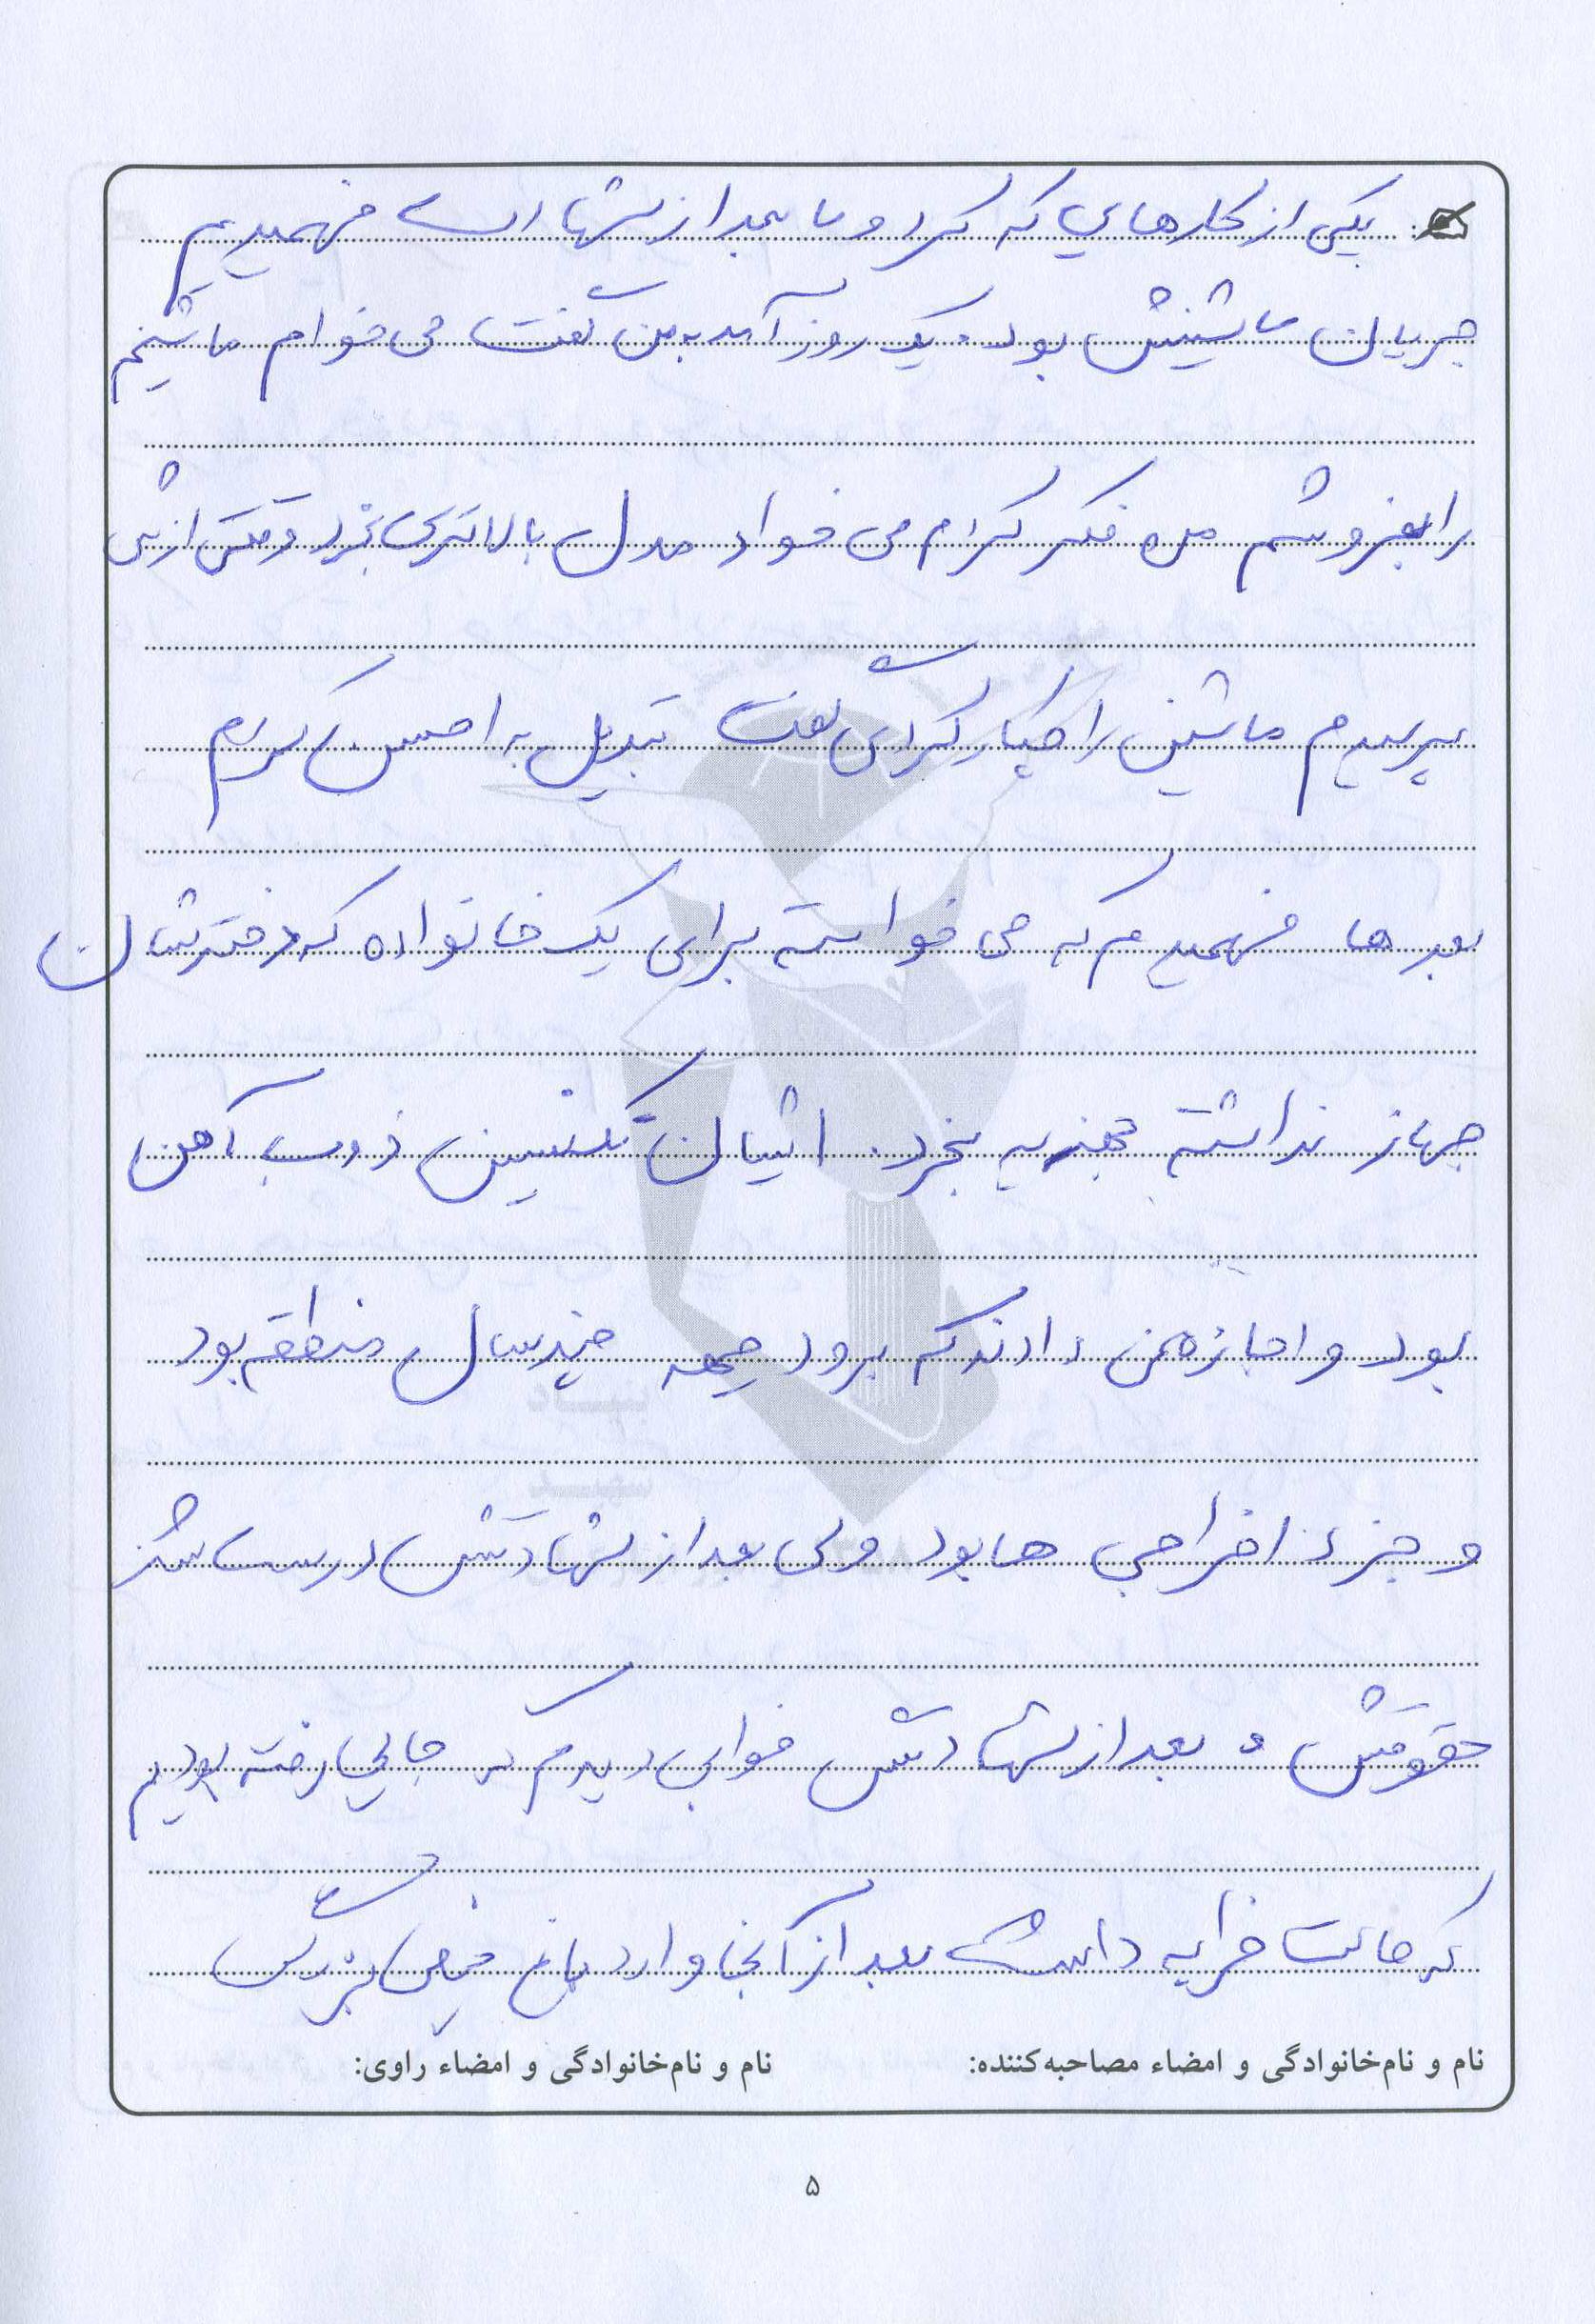 یکی از کارهایی که کرد و ما بعد از شهادت فهمیدیم
جریان ماشینش بود. یک روز آمد به من گفت می خوام ماشینم
را بفروشم من فکر کردم می خواد مدل بالاتری بخرد وقتی ازش
پرسیدم ماشین را چیکار کردی گفت تبدیل به احسن کردم
بعدها فهمیدم که می خواسته برای یک خانواده که دخترشان
جهاز نداشته جهزیه بخرد. ایشان تکنسین ذوب آهن
بود و اجازه نمی دادند که برود جبهه چند سال منطقه بود
و جزء اخراجی ها بود ولی بعد از شهادتش درست شد
حقوقش و بعد از شهادتش خوابی دیدم که جایی رفته بودیم
که حالت خرابه داشت بعد از آنجا وارد باغ خیلی بزرگی
نام و نام‌خانوادگی و امضاء مصاحبه‌کننده: نام و نام‌خانوادگی و امضاء راوی:
۵